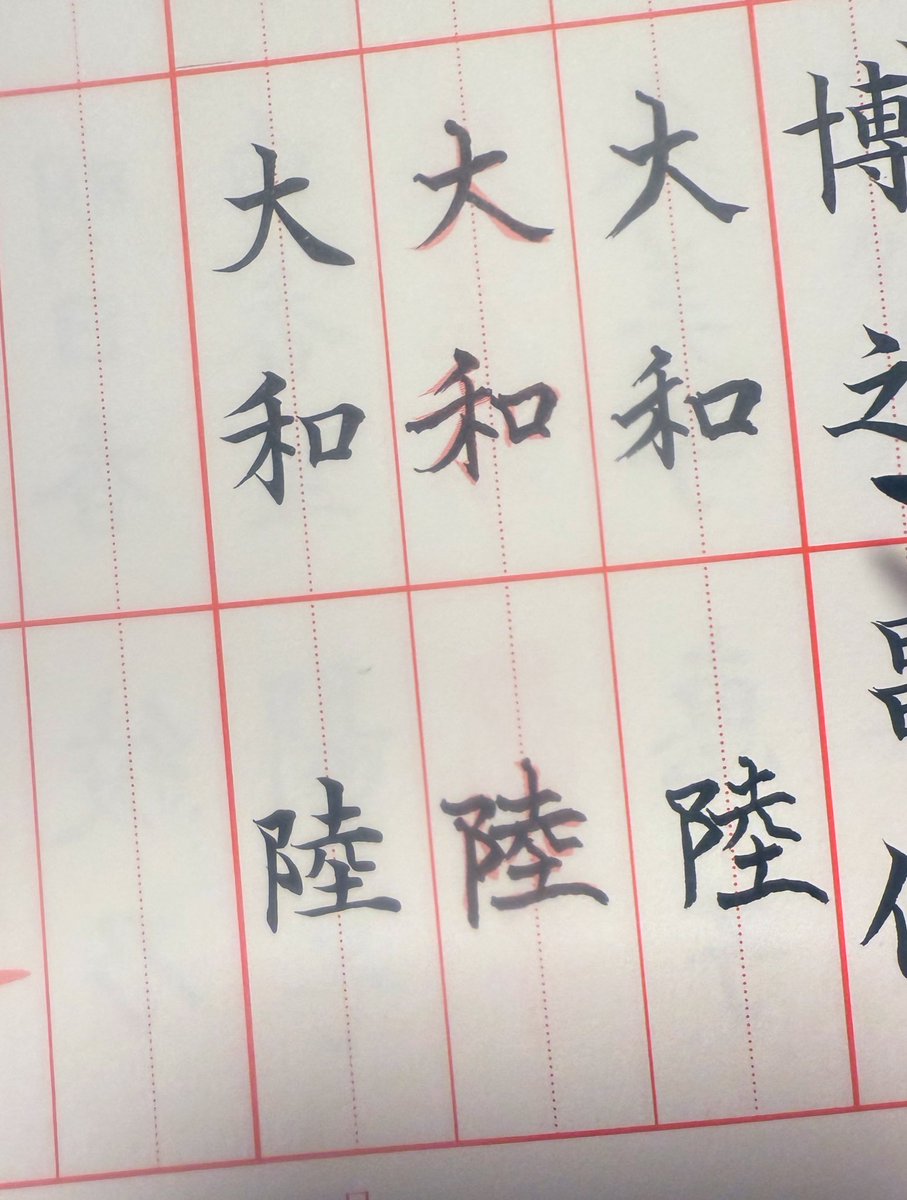 博之
大和陸
大和陸
大和陸